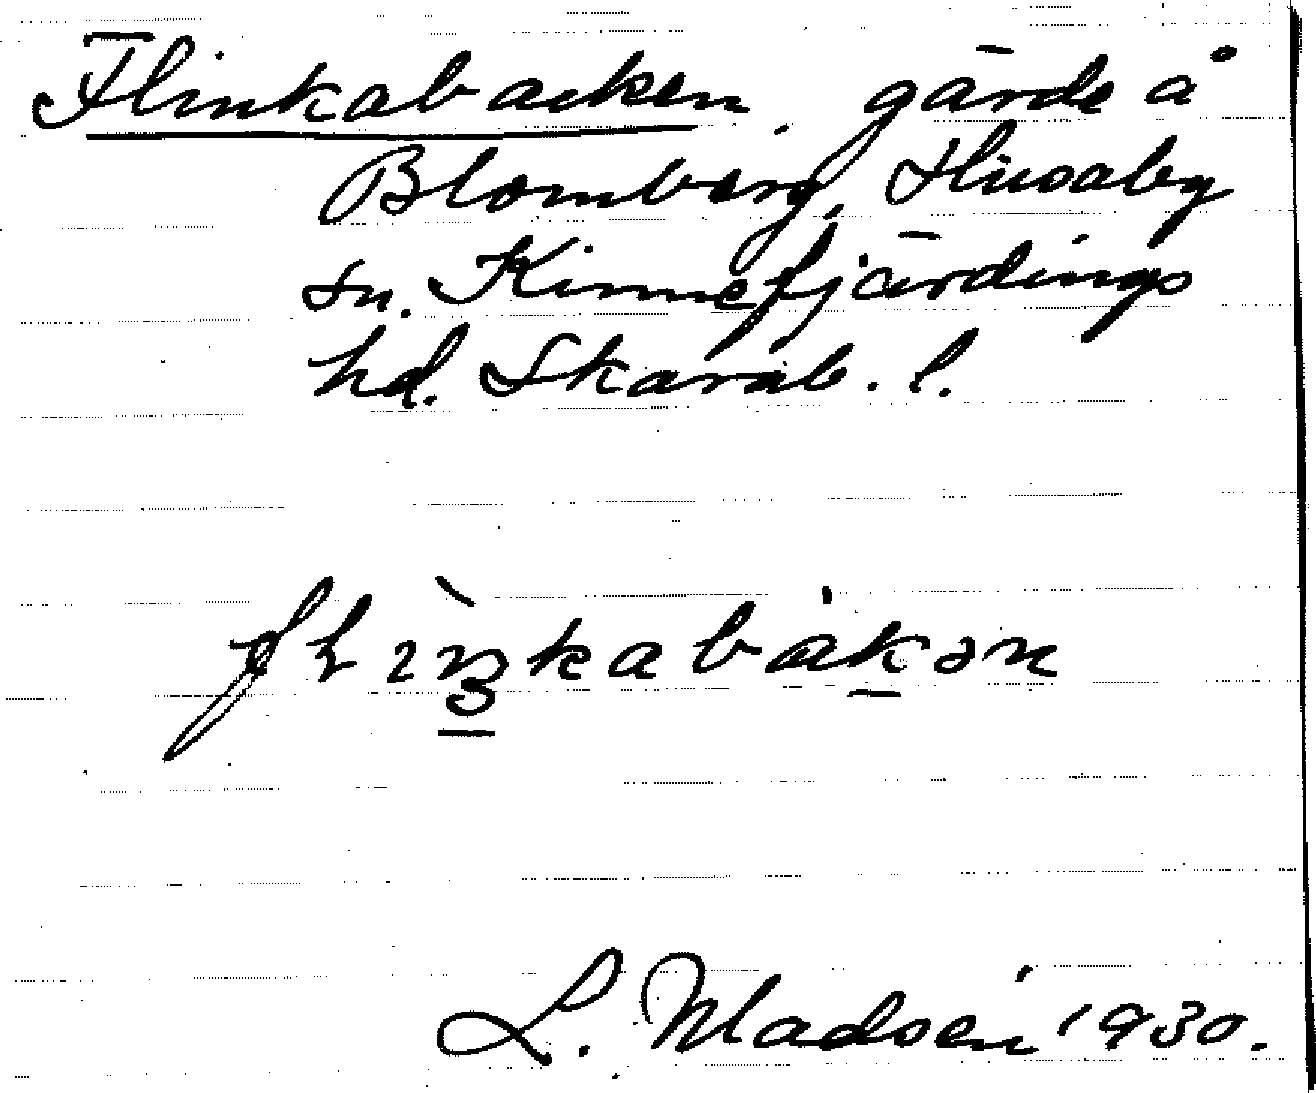 Flinkabacken, gärde å
Blomberg, Husaby
sn. Kinnefjärdings
hd. Skarab. l.
flıŋkabakən
L. Madsén 1930.